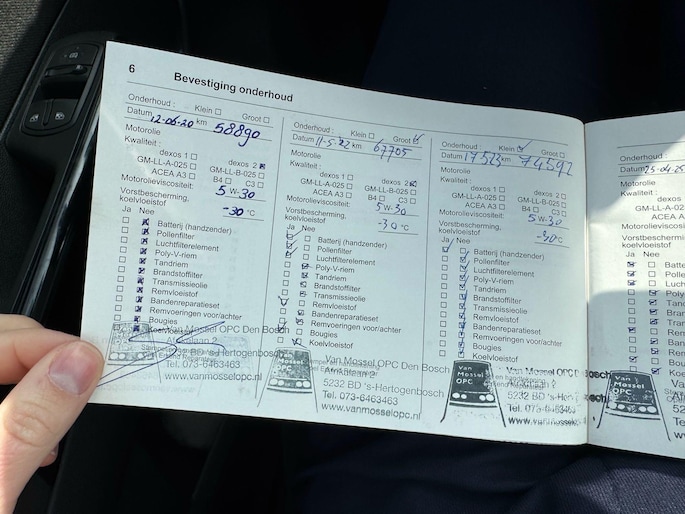 6 Bevestiging onderhoud
Onderhoud : Klein Groot
Datum 12-06-20 km 58890
Motorolie
Kwaliteit :
dexos 1 dexos 2
GM-LL-A-025 GM-LL-B-025
ACEA A3 B4 C3
Motorolieviscositeit: 5 W-30
Vorstbescherming,
koelvloeistof -30 °C
Ja Nee
Batterij (handzender)
Pollenfilter
Luchtfilterelement
Poly-V-riem
Tandriem
Brandstoffilter
Transmissieolie
Remvloeistof
Bandenreparatieset
Remvoeringen voor/achter
Bougies
Koelvloeistof
Van Mossel OPC Den Bosch
Afrikalaan 2
5232 BD 's-Hertogenbosch
Tel. 073-6463463
www.vanmosselopc.nl
Onderhoud : Klein Groot
Datum 11-5-22 km 67705
Motorolie
Kwaliteit :
dexos 1 dexos 2
GM-LL-A-025 GM-LL-B-025
ACEA A3 B4 C3
Motorolieviscositeit: 5 W-30
Vorstbescherming,
koelvloeistof -30 °C
Ja Nee
Batterij (handzender)
Pollenfilter
Luchtfilterelement
Poly-V-riem
Tandriem
Brandstoffilter
Transmissieolie
Remvloeistof
Bandenreparatieset
Remvoeringen voor/achter
Bougies
Koelvloeistof
Van Mossel OPC Den Bosch
Afrikalaan 2
5232 BD 's-Hertogenbosch
Tel. 073-6463463
www.vanmosselopc.nl
Onderhoud : Klein Groot
Datum 17523 km 74592
Motorolie
Kwaliteit :
dexos 1 dexos 2
GM-LL-A-025 GM-LL-B-025
ACEA A3 B4 C3
Motorolieviscositeit: 5 W-30
Vorstbescherming,
koelvloeistof -30 °C
Ja Nee
Batterij (handzender)
Pollenfilter
Luchtfilterelement
Poly-V-riem
Tandriem
Brandstoffilter
Transmissieolie
Remvloeistof
Bandenreparatieset
Remvoeringen voor/achter
Bougies
Koelvloeistof
Van Mossel OPC
Van Mossel OPC Den Bosch
Afrikalaan 2
5232 BD 's-Hertogenbosch
Tel. 073-6463463
www.vanmosselopc.nl
Onderhoud :
Datum
Motorolie
Kwaliteit :
dexos 1
GM-LL-A-025
ACEA A3
Motorolieviscositeit
Vorstbescherming
koelvloeistof
Ja Nee
Van Mossel OPC